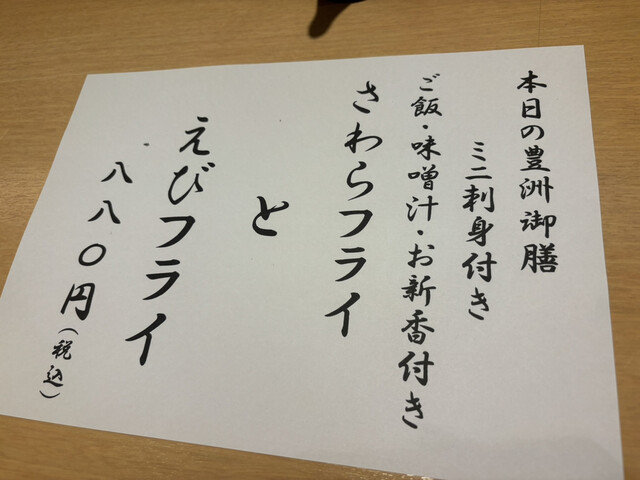 本日の豊洲御膳
ミニ刺身付き
ご飯・味噌汁・お新香付き
さわらフライ
と
えびフライ
八八〇円(税込)